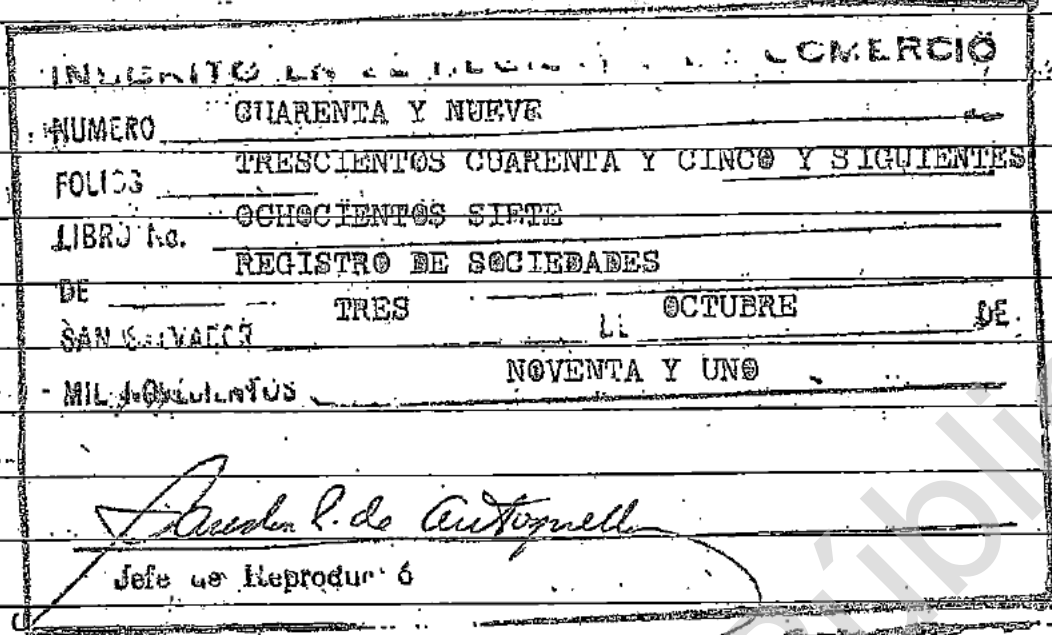 INSCRITO EN EL REGISTRO DE COMERCIO
NUMERO CUARENTA Y NUEVE
FOLIOS TRESCIENTOS CUARENTA Y CINCO Y SIGUIENTES
LIBRO No. OCHOCIENTOS SIETE
DE REGISTRO DE SOCIEDADES
SAN SALVADOR TRES DE OCTUBRE DE
MIL NOVECIENTOS NOVENTA Y UNO
de
Jefe de Reproducció
úbli